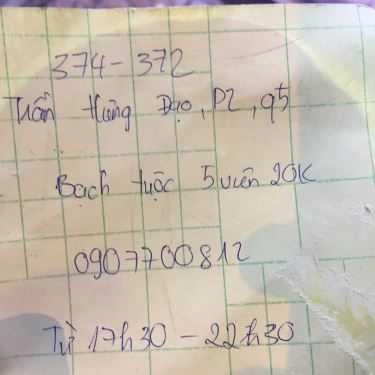 374 - 372
Trần Hưng Đạo, P2, q5
Bạch tuộc 5 viên 20K
0907700812
Từ 17h30 - 22h30